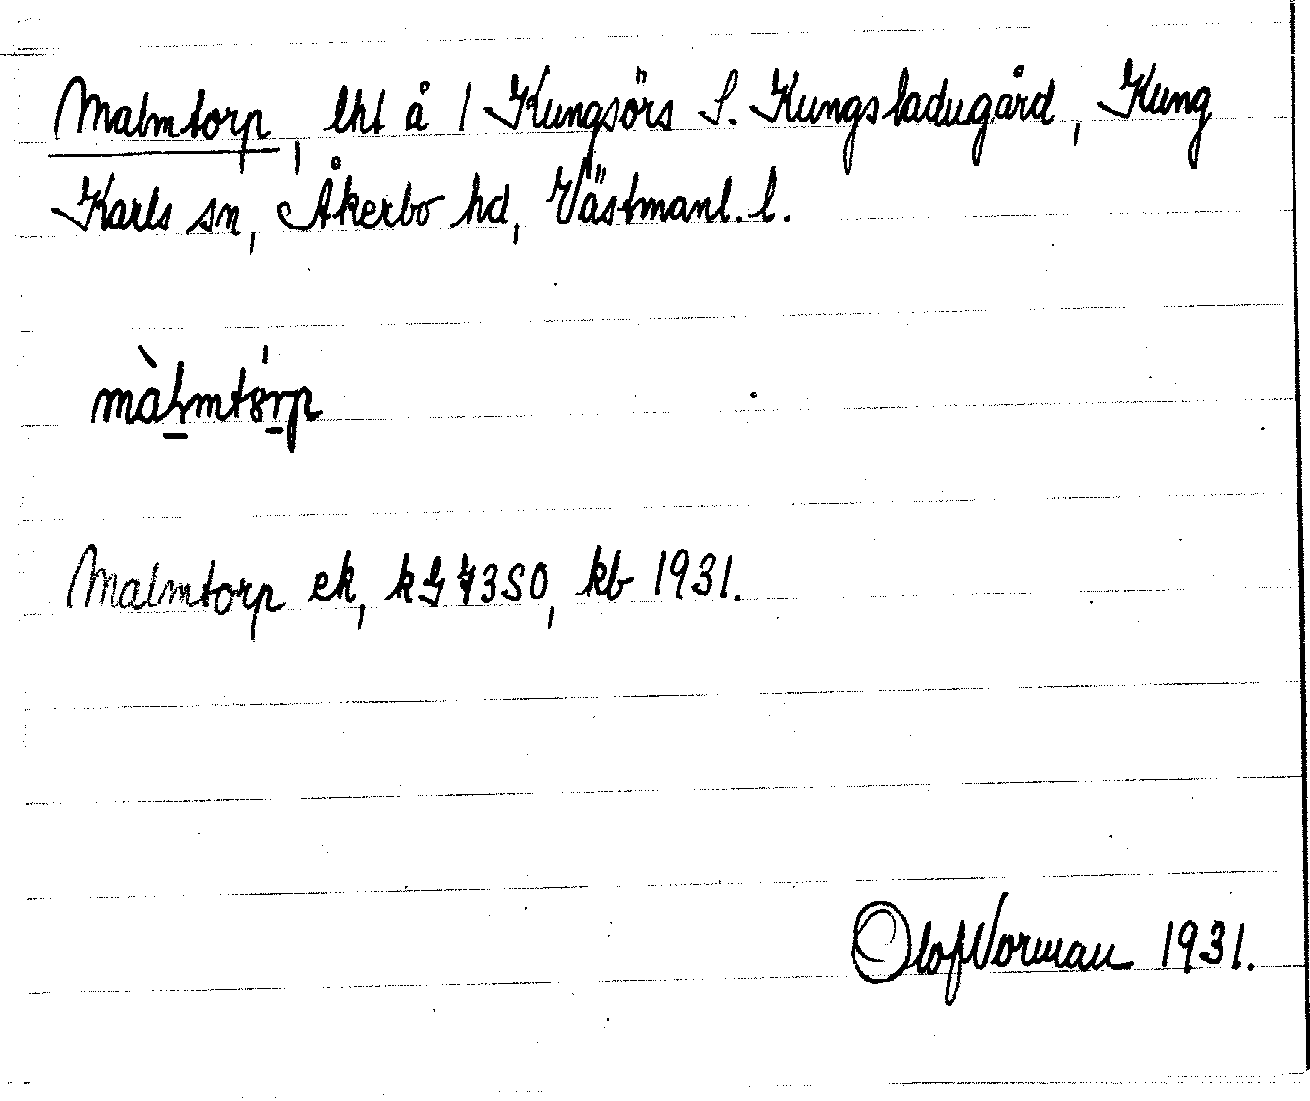 Malmtorp, lht å 1 Kungsörs S. Kungsladugård, Kung
Karls sn, Åkerbo hd, Västmanl. l.
màlmtórp
Malmtorp ek, kG 7350, kb 1931.
Olof Norman 1931.